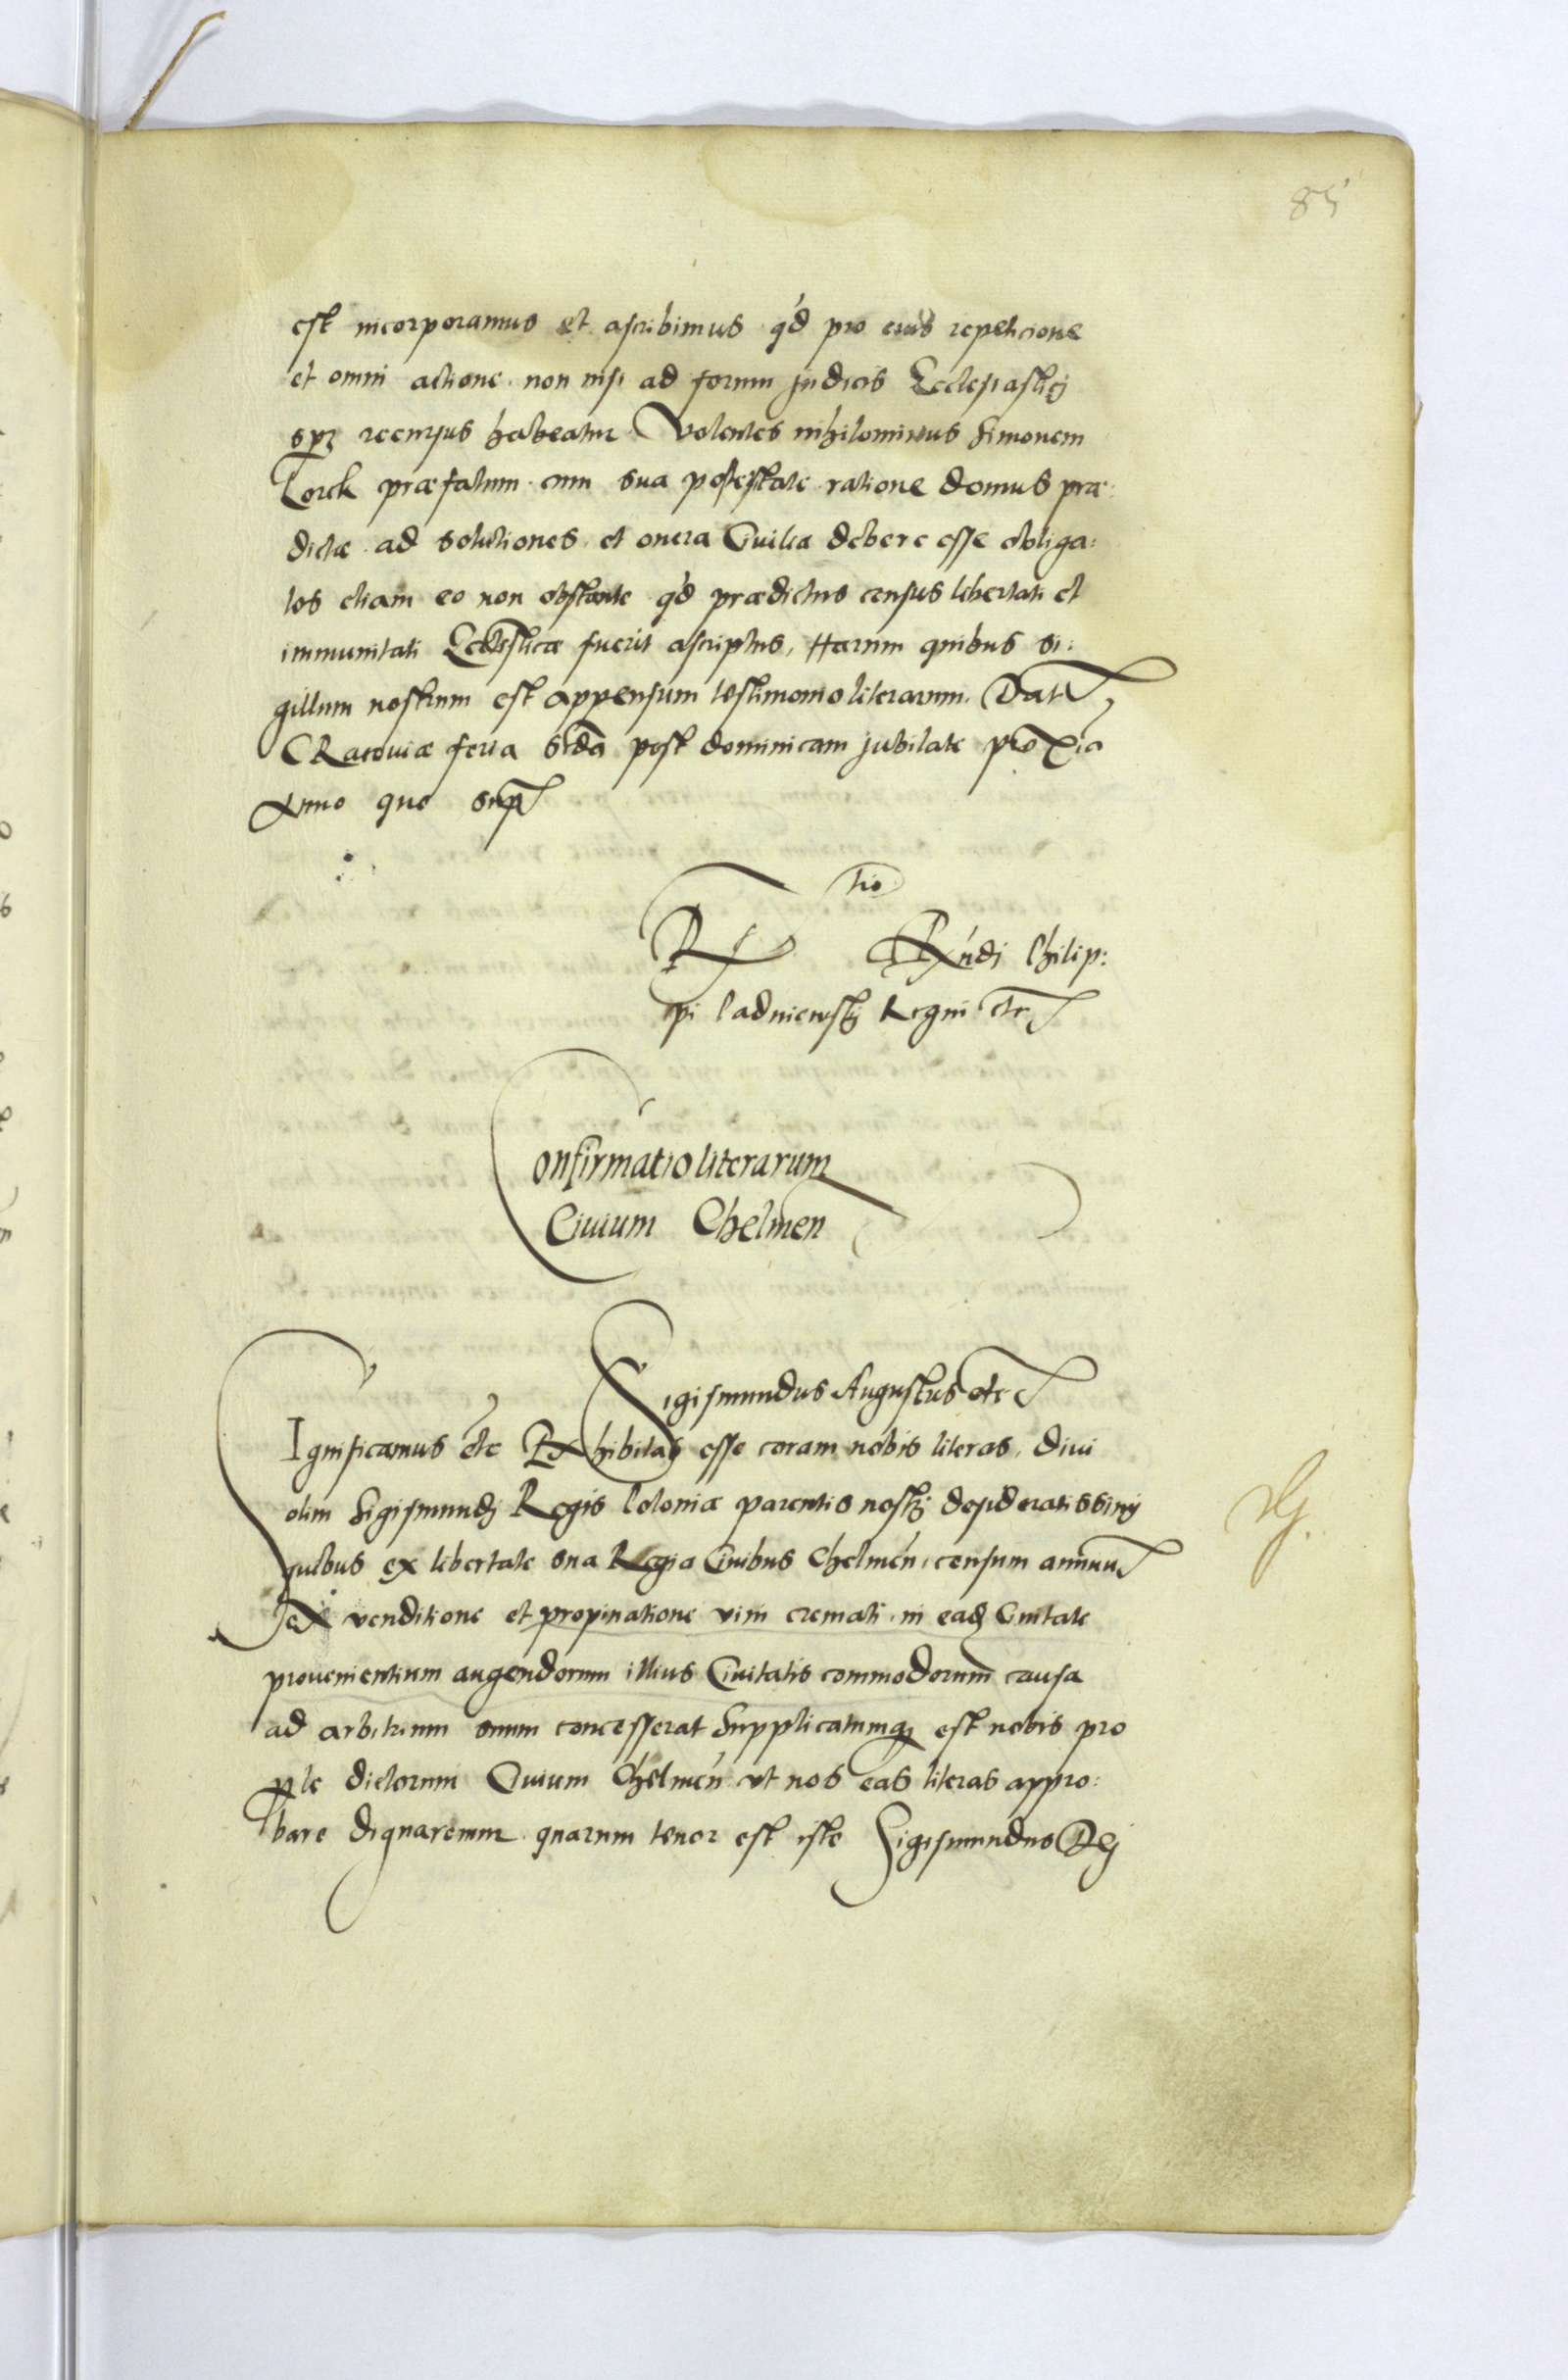 85
est incorporamus et ascribimus q'd pro eius repeticione
et omni actione non nisi ad forum judicis Ecclesiastici
recursus habeatur. Volentes nihilominus Simonem
præfatum cum sua potestate ratione domus præ:
dictæ ad solutiones et onera Civilia debere esse obliga:
tos etiam eo non obstante q'd prædictus census libertati et
immunitati Ecclesticæ fuerit ascriptus, Harum quibus si:
gillum nostrum est appensum testimonio literarum. Dat
CRacoviæ feria scda post dominicam jubilate proxia
Anno quo supr
R tio Rndi Philip:
pi Padniewskj Regni etc
Confirmatio literarum
Civium Chelmen
Sigismundus Augustus etc
SIgnificamus etc Exhibitas esse coram nobis literas, divi
olim Sigismundj Regis Poloniæ parentis nostrj desideratissimj
quibus ex libertate sua Regia Civibus Chelmen, censum annuu
ex venditione et propinatione vini cremati in ead Civitate
provenientium augendorum illius Civitatis commodorum causa
ad arbitrium suum concesserat Supplicatumq est nobis pro
pte dictorum Civium Chelmen vt nos eas literas appro:
bare dignaremur quarum tenor est iste Sigismundus Dej